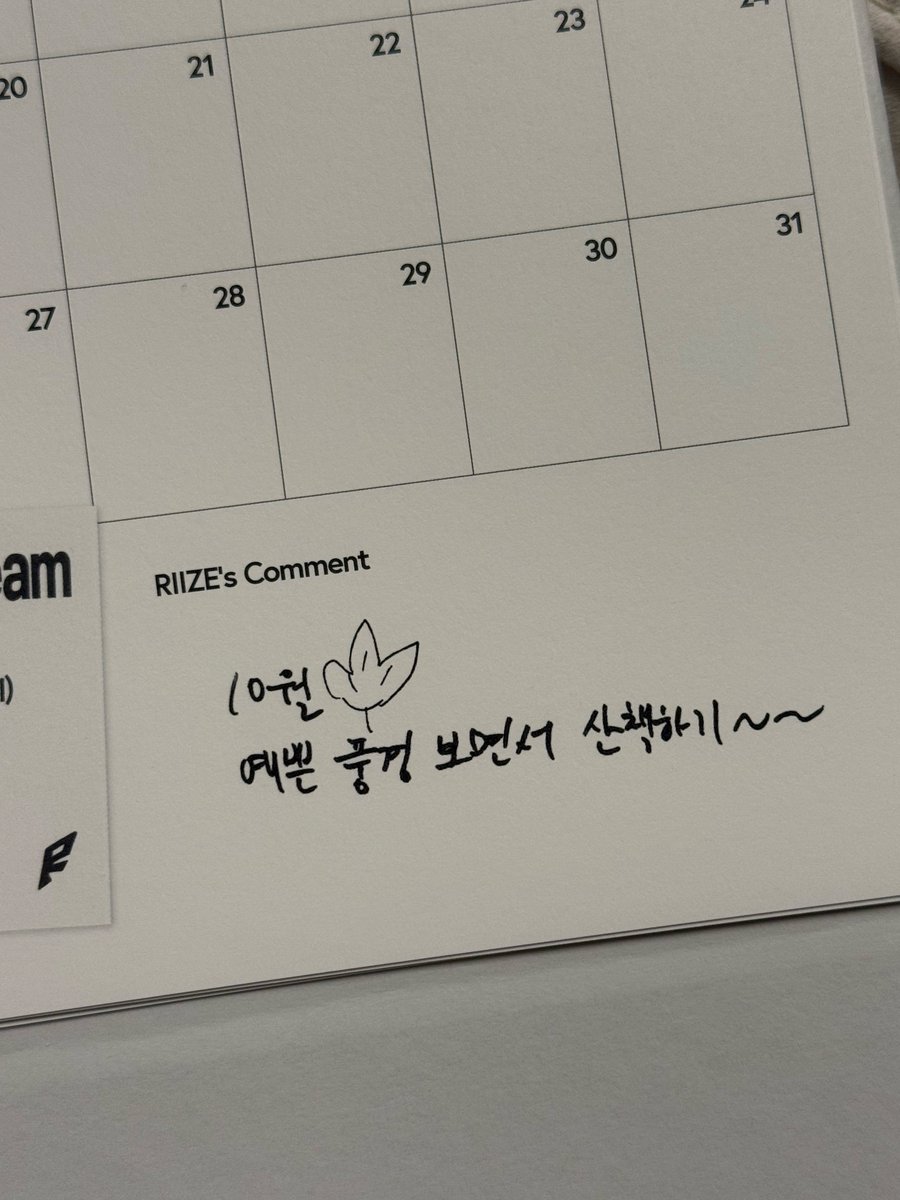 20 21 22 23 24
27 28 29 30 31
RIIZE's Comment
10월
예쁜 풍경 보면서 산책하기~~